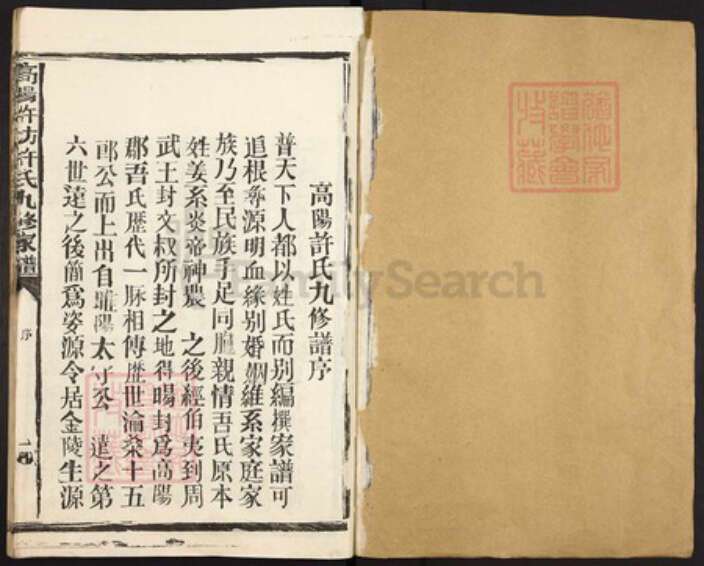 高陽許氏九修譜序
普天下人都以姓氏而別編撰家譜可
追根尋源明血緣別婚姻維系家庭家
族乃至民族手足同胞親情吾氏原本
姓姜系炎帝神農 之後經伯夷到周
武王封文叔所封之地得暘封爲高陽
郡吾氏歷代一脉相傳歷世淪桑十五
邱公而上出自雎陽太守公 遠之第
六世達之後簡爲姿源令居金陵生源
高陽許坊許氏九修家譜
序
一
FamilySearch